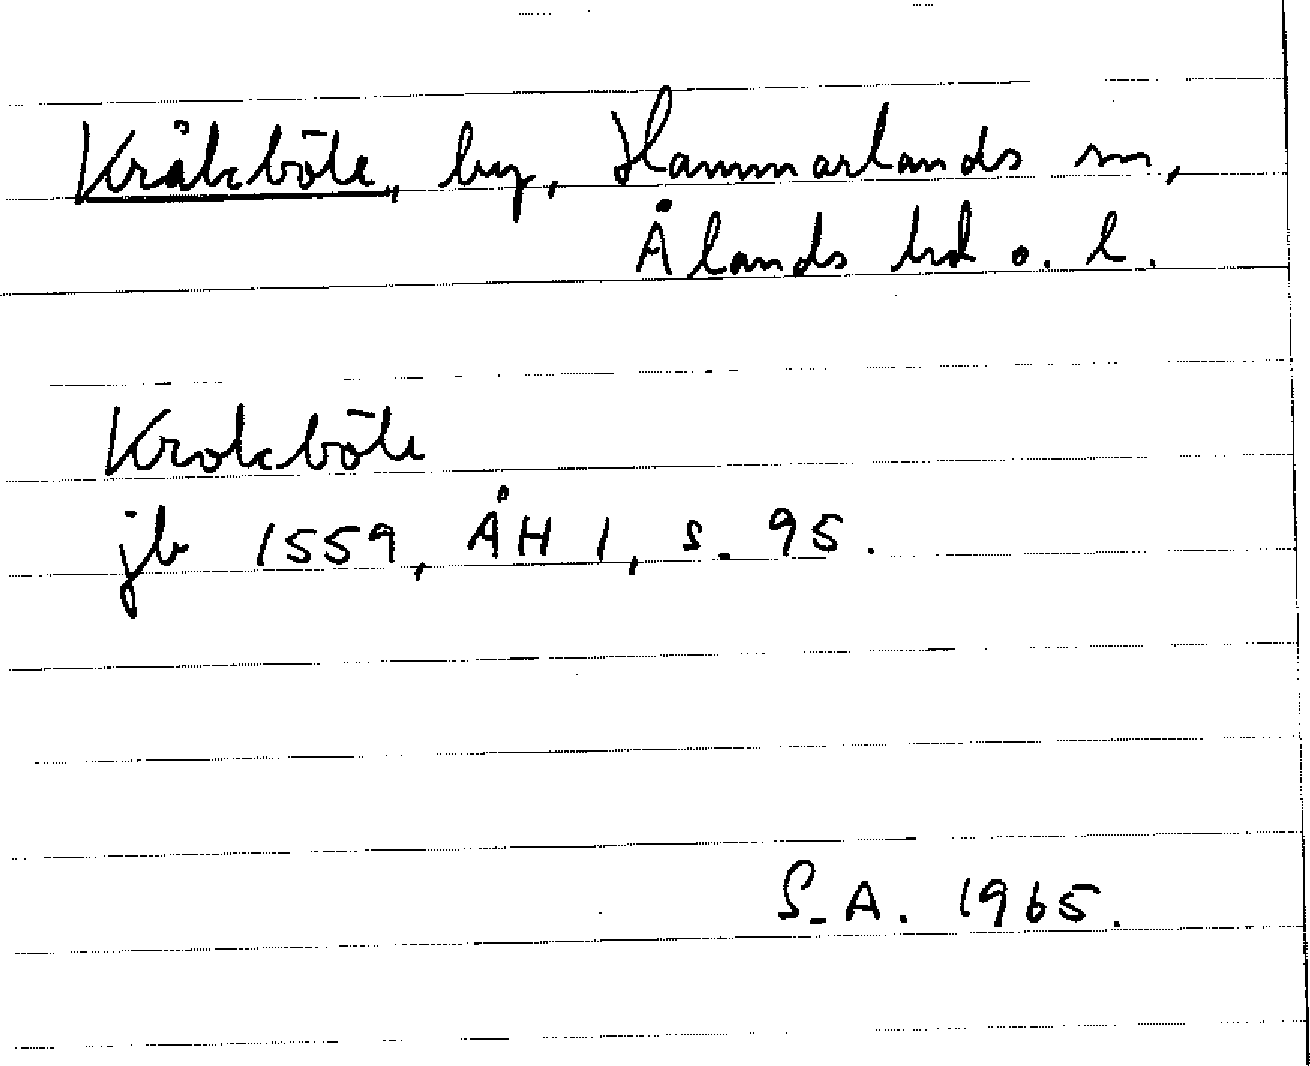 Kråkböle, by, Hammarlands sn,
Ålands hd o. l.
Krokböle
jb 1559, ÅH 1, s. 95.
S.A. 1965.